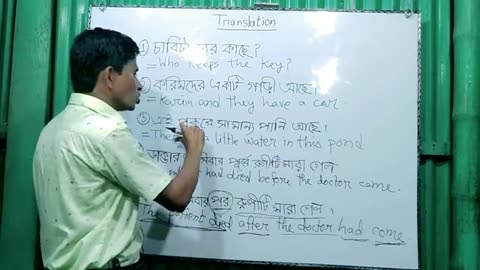 Translation
① চাবিটা কার কাছে?
= Who keeps the key?
② করিমদের একটি গাড়ি আছে।
= Karim and they have a car.
③ এই পুকুরে সামান্য পানি আছে।
= There little water in this pond
ডাক্তার আসিবার পূর্বে রুগীটি মারা গেল
had died before the doctor came.
পর রুগীটি মারা গেল।
The patient died after the doctor had come.